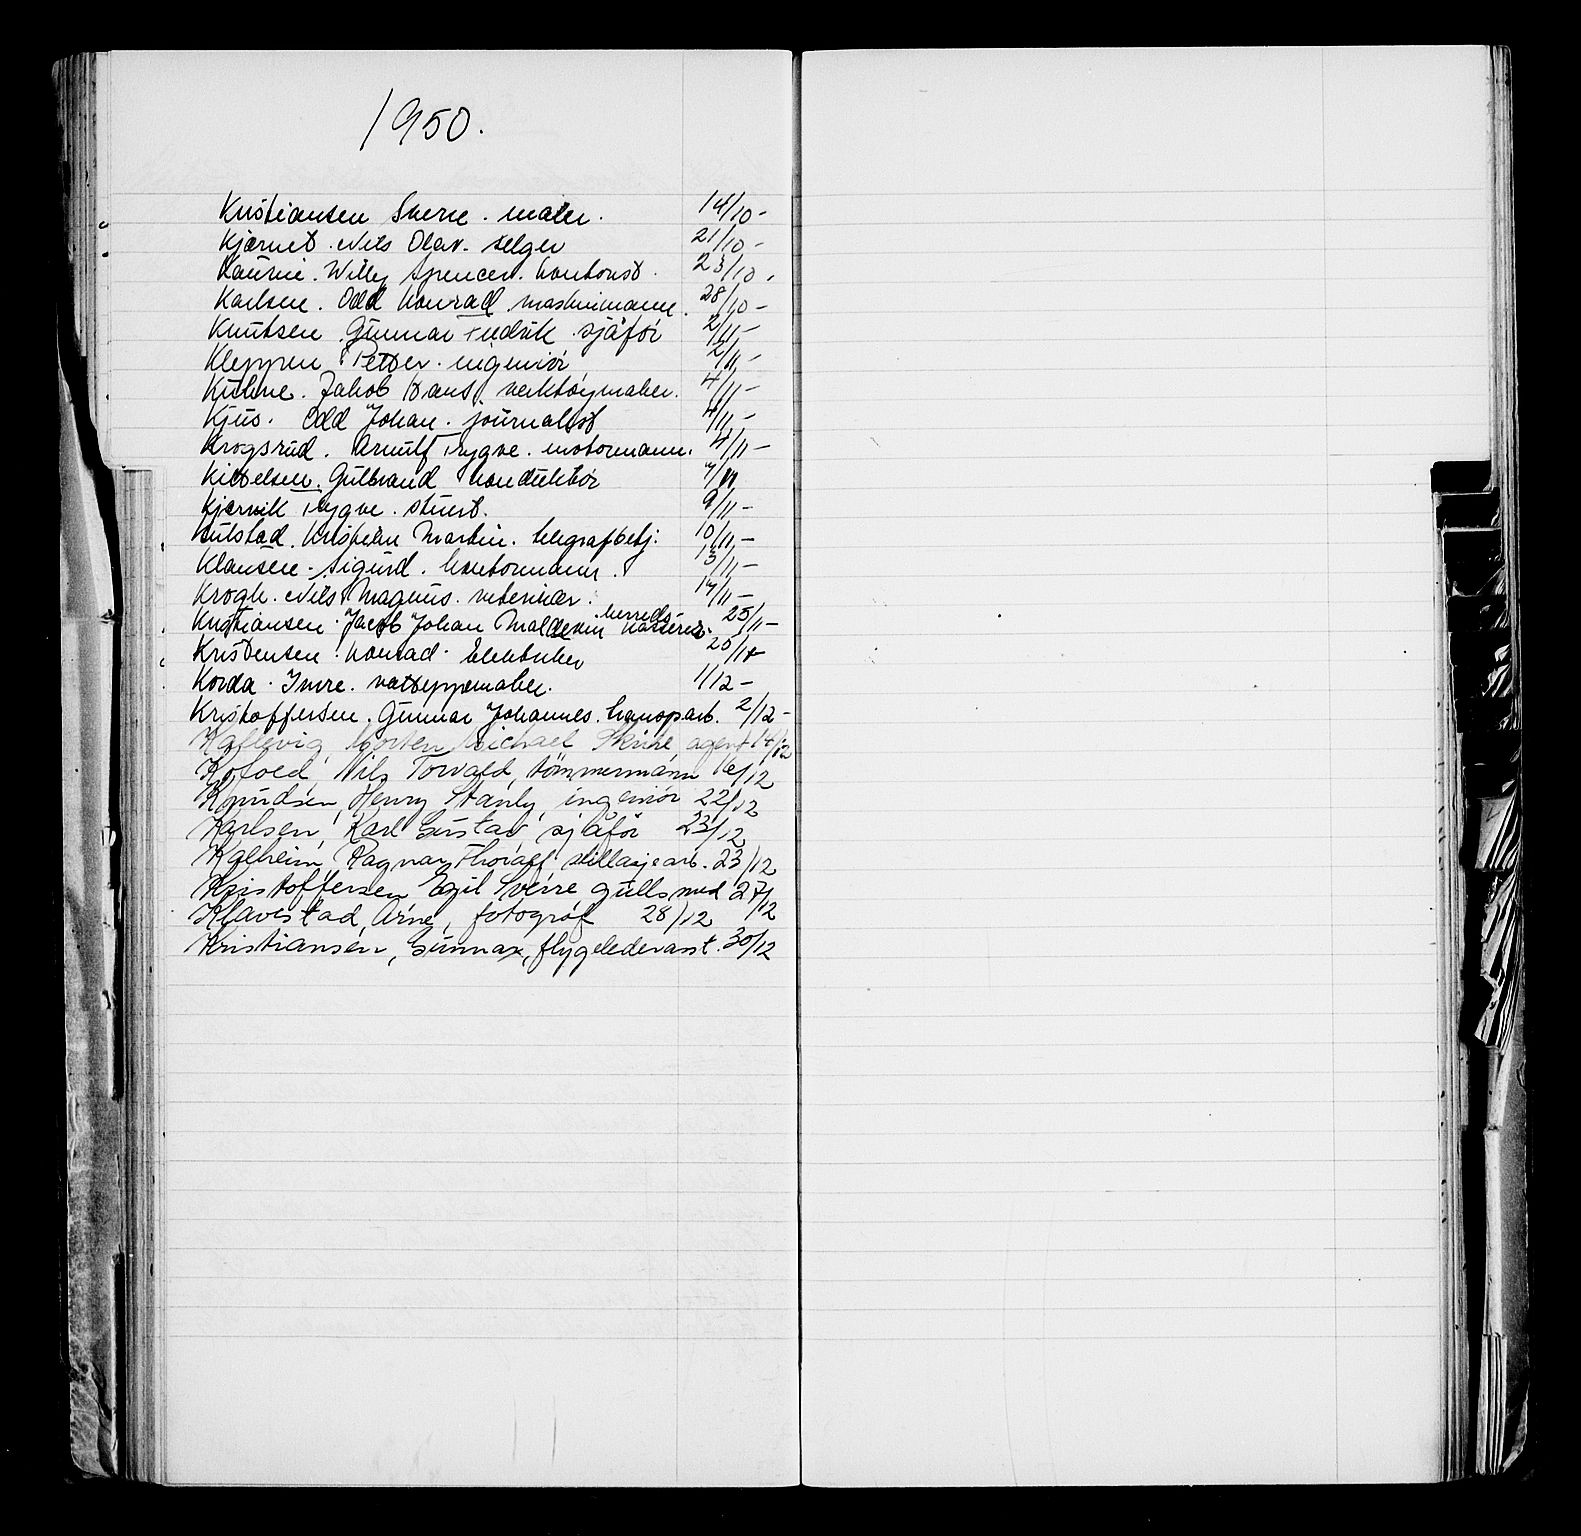 1950.
Kristiansen Sverre. maler. 14/10 -
Kjærnet. Nils Olav. selger 21/10 -
Laurie. Willy Spencer. kontorist. 23/10.
Karlsen. Odd Konrad maskinmann. 28/10 -
Knutsen. Gunnar Fredrik. sjåfør 2/11 -
Kleppen Petter. ingeniør 2/11 -
Kühne. Jakob Hans. verktøymaker. 4/11 -
Kjus. Odd Johan. journalist 4/11 -
Krogsrud. Arnulf Trygve. motormann. 4/11 -
Kittelsen. Gulbrand konduktør 7/11
Kjærvik Trygve. stuert. 9/11 -
Kulstad. Kristian Martin. telegrafbetj. 10/11 -
Klausen. Sigurd. kontormann. 13/11 -
Krogh. Nils Magnus. veterinær. 17/11 -
Kristiansen. Jacob Johan Maldevin herreds- kasserer. 25/11 -
Kristensen. Konrad. Elektriker 25/11 -
Korda. Imre. vatteppemaker. 1/12 -
Kristoffersen. Gunnar Johannes. transp.arb. 2/12 -
Morten Michael Skrine agent 14/12
Kofoed, Nils Torvald, tömmermann 16/12
Knudsen, Henry Stanly, ingeniör 22/12
Karlsen, Karl Gustav sjåför 23/12
Kalheim, Ragnar Thoralf stillasjearb. 23/12
Kristoffersen Egil Sverre gullsmed 27/12
Klavestad, Arne, fotograf 28/12
Kristiansen, Gunnar, flygelederasst. 30/12